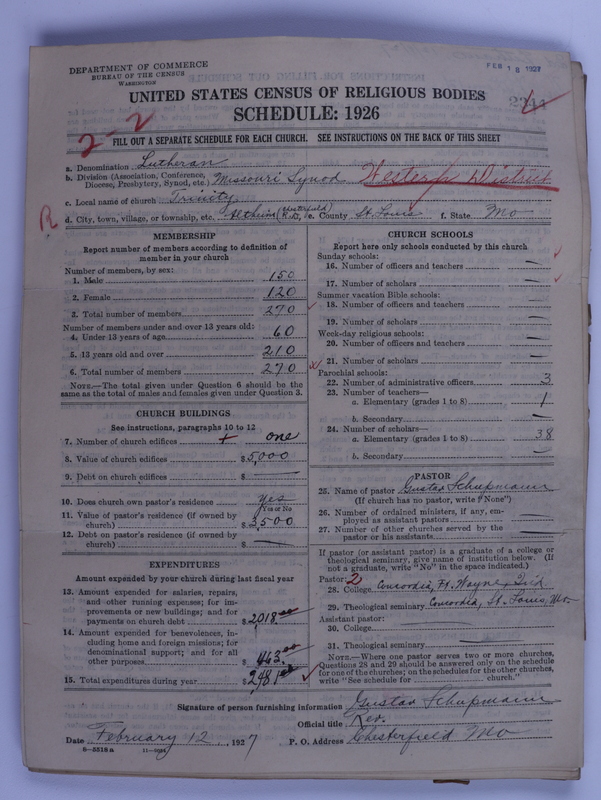 DEPARTMENT OF COMMERCE
BUREAU OF THE CENSUS
WASHINGTON
FEB 18 1927
UNITED STATES CENSUS OF RELIGIOUS BODIES
SCHEDULE: 1926
2-2
FILL OUT A SEPARATE SCHEDULE FOR EACH CHURCH. SEE INSTRUCTIONS ON THE BACK OF THIS SHEET
a. Denomination Lutheran
b. Division (Association, Conference, Diocese, Presbytery, Synod, etc.) Missouri Synod Western District
c. Local name of church Trinity
R
d. City, town, village, or township, etc. Altheim (Chesterfield R.D.) e. County St. Louis f. State Mo
MEMBERSHIP
Report number of members according to definition of
member in your church
Number of members, by sex:
1. Male 150
2. Female 120
3. Total number of members 270
Number of members under and over 13 years old:
4. Under 13 years of age 60
5. 13 years old and over 210
6. Total number of members 270
NOTE.—The total given under Question 6 should be the
same as the total of males and females given under Question 3.
CHURCH BUILDINGS
See instructions, paragraphs 10 to 12
7. Number of church edifices one
8. Value of church edifices $5,000
9. Debt on church edifices $ —
10. Does church own pastor's residence yes
Yes or No
11. Value of pastor's residence (if owned by
church) $3,500
12. Debt on pastor's residence (if owned by
church) $ —
EXPENDITURES
Amount expended by your church during last fiscal year
13. Amount expended for salaries, repairs,
and other running expense; for im-
provements or new buildings; and for
payments on church debt $2018.00
14. Amount expended for benevolences, in-
cluding home and foreign missions; for
denominational support; and for all
other purposes $443.00
15. Total expenditures during year $2461.00
CHURCH SCHOOLS
Report here only schools conducted by this church
Sunday schools:
16. Number of officers and teachers —
17. Number of scholars —
Summer vacation Bible schools:
18. Number of officers and teachers —
19. Number of scholars —
Week-day religious schools:
20. Number of officers and teachers —
21. Number of scholars —
Parochial schools:
22. Number of administrative officers 3
23. Number of teachers—
a. Elementary (grades 1 to 8) 1
b. Secondary —
24. Number of scholars—
a. Elementary (grades 1 to 8) 38
b. Secondary —
PASTOR
25. Name of pastor Gustav Schupmann
(If church has no pastor, write "None")
26. Number of ordained ministers, if any, em-
ployed as assistant pastors —
27. Number of other churches served by the
pastor or his assistants —
If pastor (or assistant pastor) is a graduate of a college or
theological seminary, give name of institution below. (If
not a graduate, write "No" in the space indicated.)
Pastor: 2
28. College Concordia, Ft. Wayne, Ind
29. Theological seminary Concordia, St. Louis, Mo.
Assistant pastor:
30. College —
31. Theological seminary —
NOTE.—Where one pastor serves two or more churches,
Questions 28 and 29 should be answered only on the schedule
for one of the churches; on the schedules for the other churches,
write "See schedule for church."
Signature of person furnishing information Gustav Schupmann
Official title Rev.
Date February 12, 1927 P. O. Address Chesterfield Mo
8-5518a 11-9064